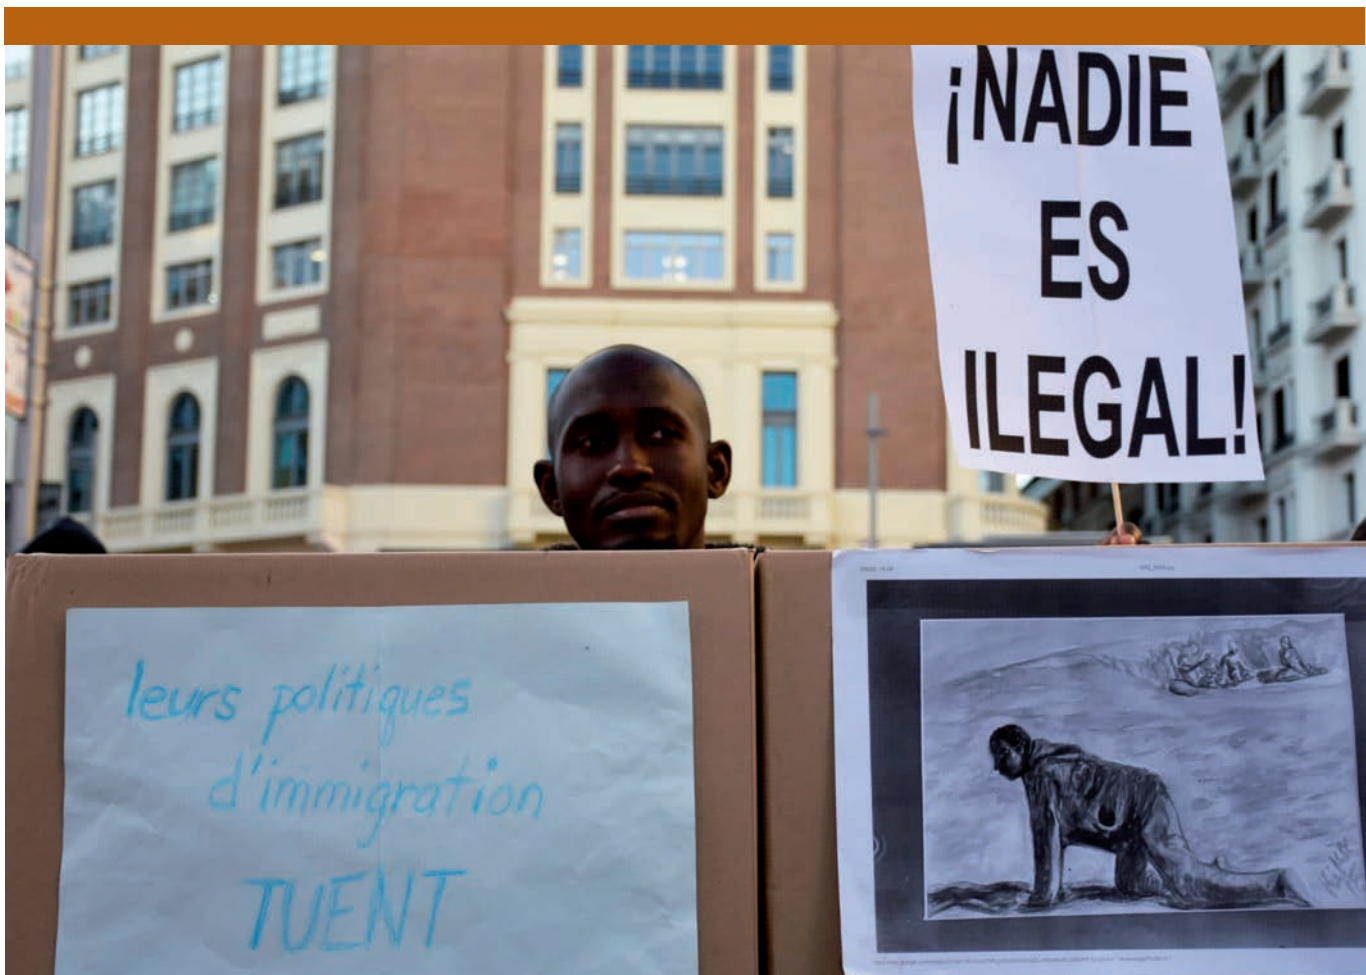 ¡NADIE
ES
ILEGAL!
leurs politiques
d'immigration
TUENT